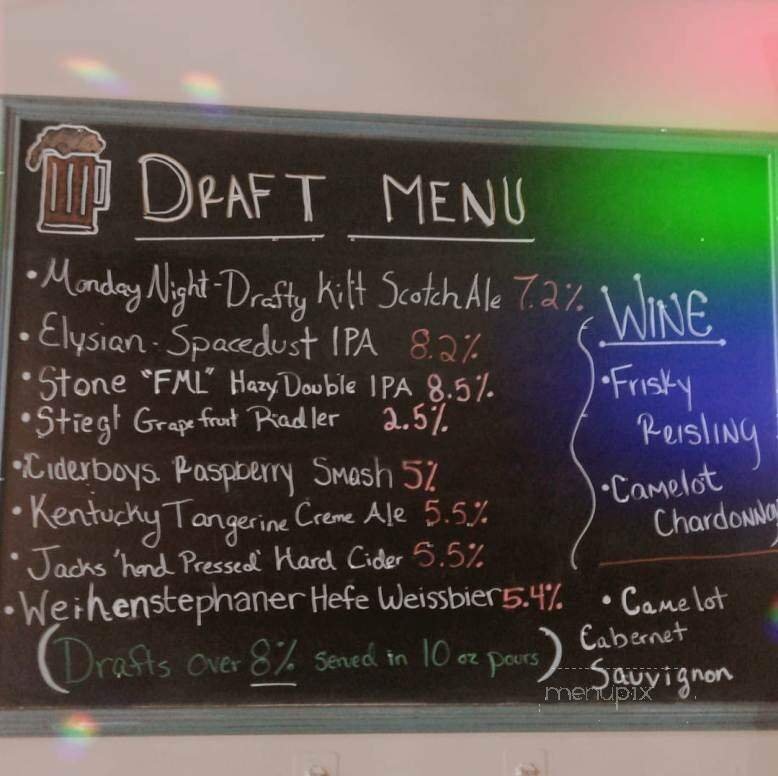 DRAFT MENU
•Monday Night-Drafty Kilt Scotch Ale 7.2%
•Elysian-Spacedust IPA 8.2%
•Stone "FML" Hazy Double IPA 8.5%
•Stiegl Grapefruit Radler 2.5%
•Ciderboys Raspberry Smash 5%
•Kentucky Tangerine Creme Ale 5.5%
•Jacks 'hand Pressed' Hard Cider 5.5%
•Weihenstephaner Hefe Weissbier 5.4%
(Drafts over 8% served in 10 oz pours)
WINE
•Frisky
Reisling
•Camelot
Chardonnay
•Camelot
Cabernet
Sauvignon
menupix